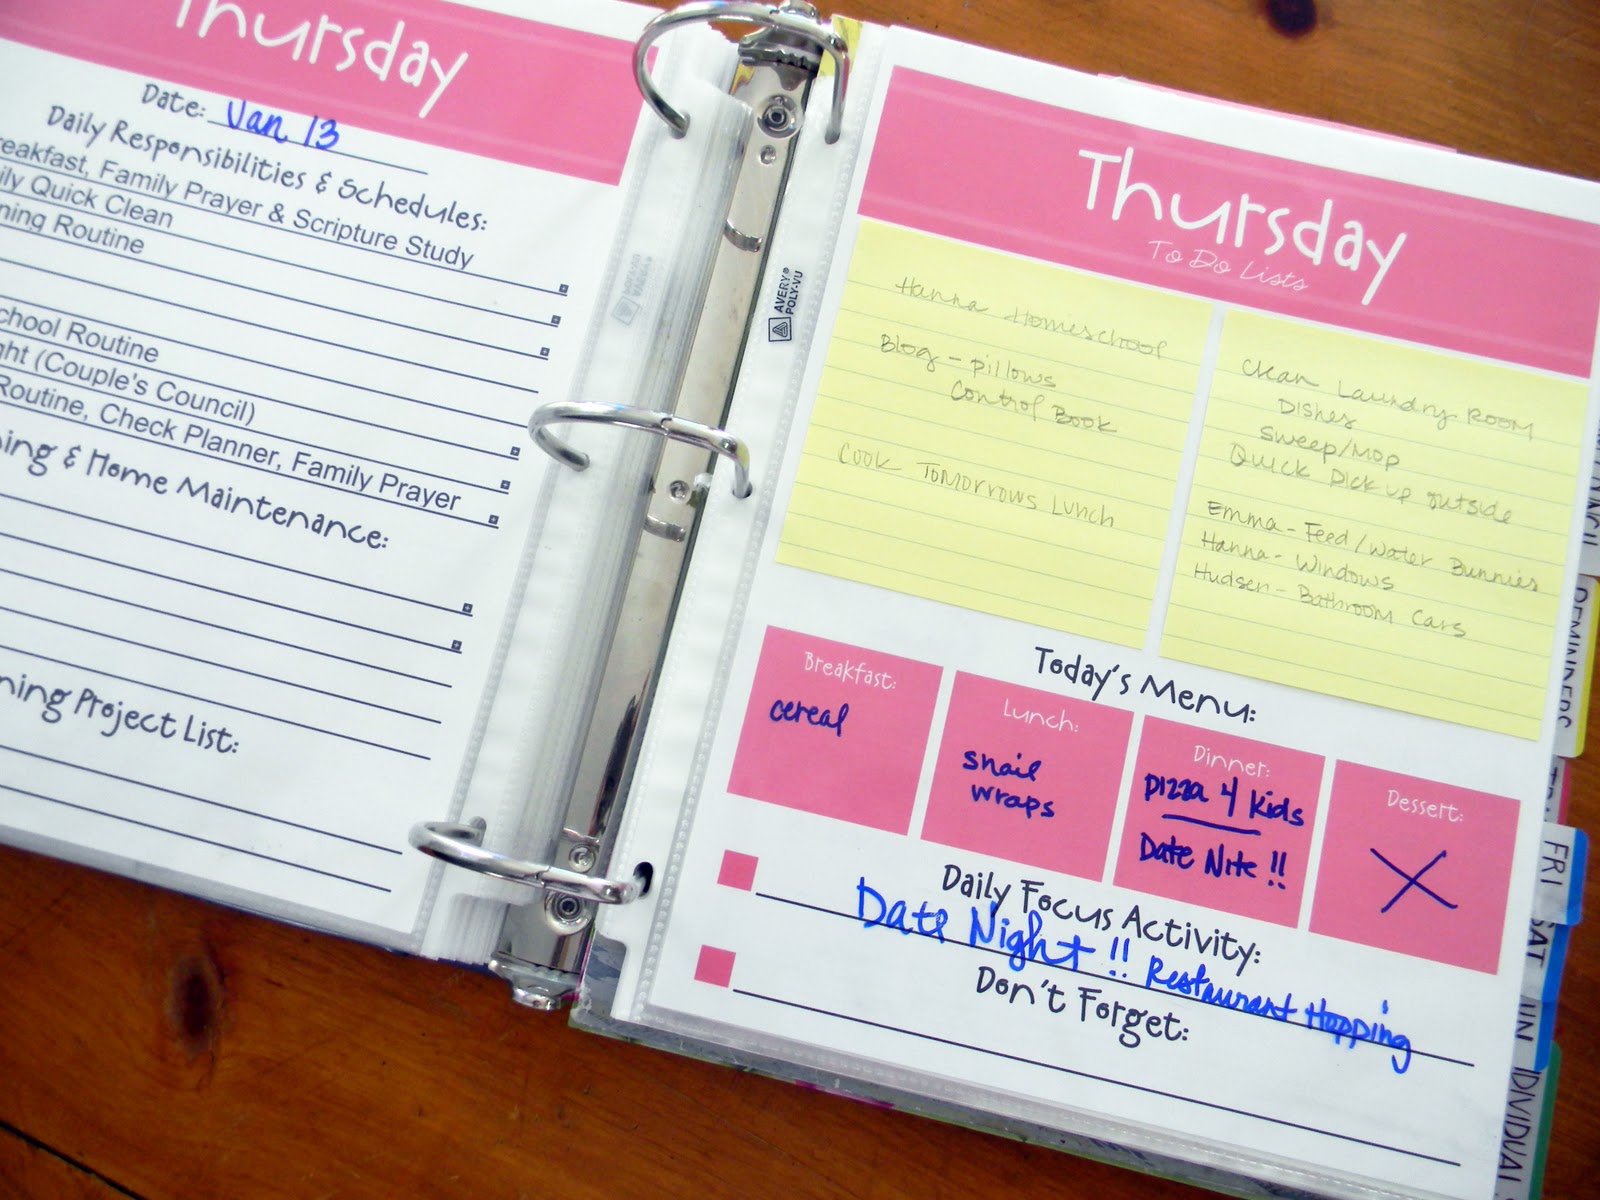 Thursday
Date: Jan 13
Daily Responsibilities & Schedules:
eakfast, Family Prayer & Scripture Study
ily Quick Clean
ning Routine
chool Routine
ght (Couple's Council)
Routine, Check Planner, Family Prayer
ing & Home Maintenance:
ning Project List:
AVERY®
POLY-VU
Thursday
To Do Lists
Hanna Homeschool
Blog - pillows
Control Book
Cook Tomorrows Lunch
Clean Laundry Room
Dishes
Sweep/Mop
Quick Pick up outside
Emma - Feed/Water Bunnies
Hanna - Windows
Hudsen - Bathroom Cars
Today's Menu:
Breakfast:
cereal
Lunch:
snail
wraps
Dinner:
pizza 4 kids
Date Nite !!
Dessert:
X
Daily Focus Activity:
Date Night !! Restaurant Hopping
Don't Forget:
FRI
SAT
UN
DIVIDUAL